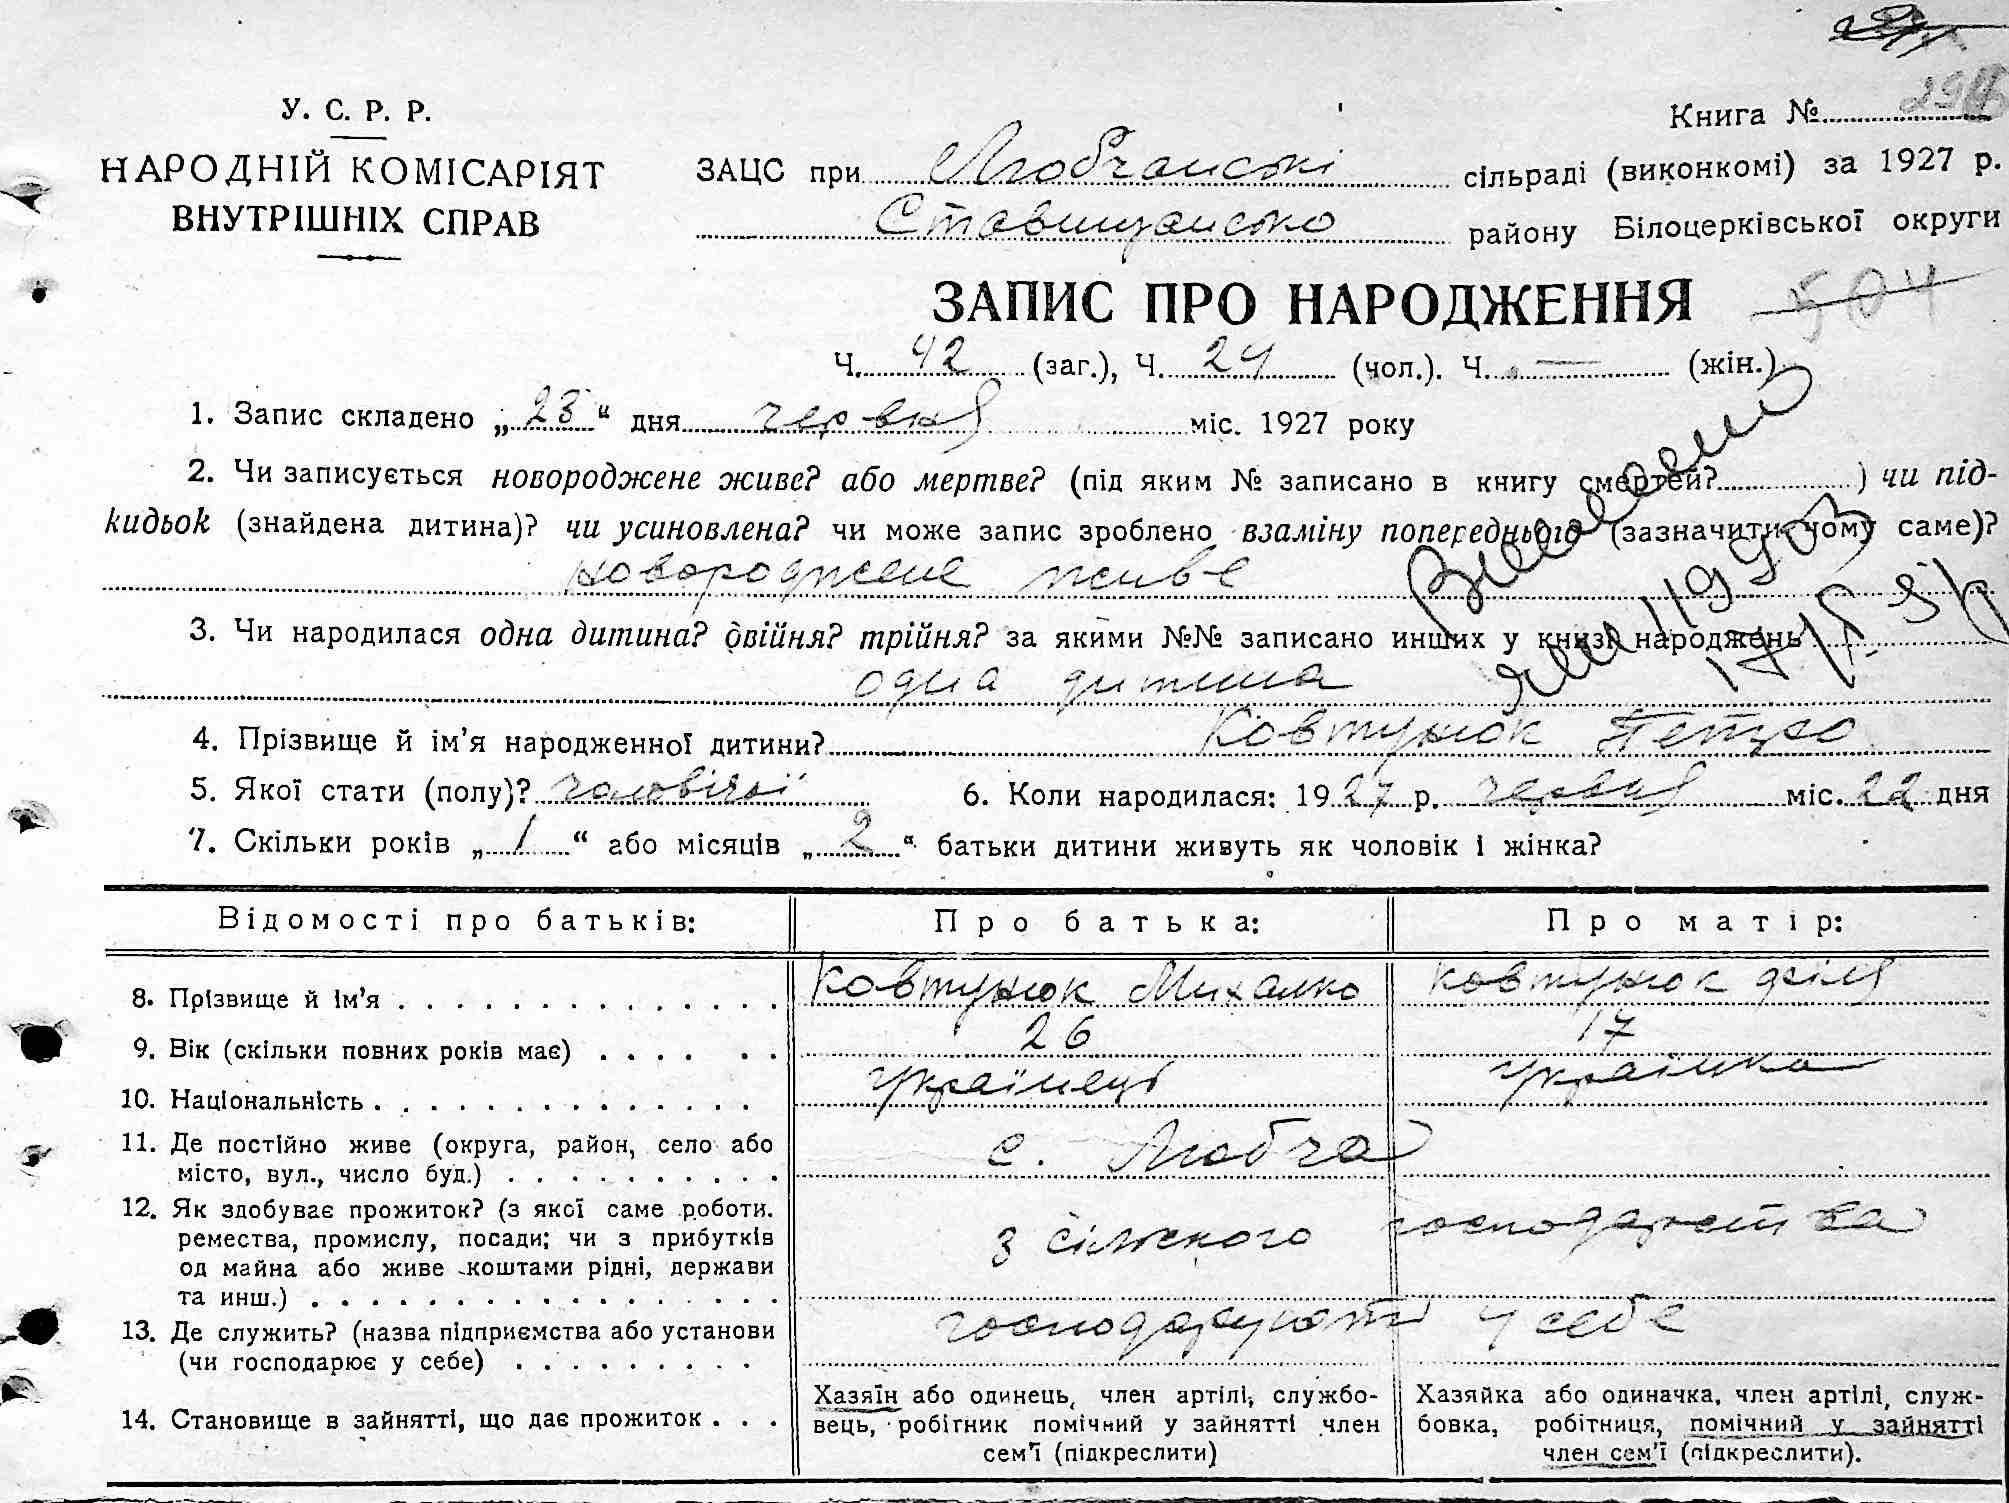 У. С. Р. Р.
НАРОДНІЙ КОМІСАРІЯТ
ВНУТРІШНІХ СПРАВ
Книга №
ЗАЦС при Любчанські сільраді (виконкомі) за 1927 р.
Ставищансько району Білоцерківської округи
ЗАПИС ПРО НАРОДЖЕННЯ
504
Ч. 42 (заг.), Ч. 24 (чол.). Ч. — (жін.)
1. Запис складено „23“ дня червня міс. 1927 року
2. Чи записується новороджене живе? або мертве? (під яким № записано в книгу смертей? ) чи під-
кидьок (знайдена дитина)? чи усиновлена? чи може запис зроблено взаміну попереднього (зазначити чому саме)?
новороджене живе
3. Чи народилася одна дитина? двійня? трійня? за якими №№ записано инших у книзі народжень
одна дитина
4. Прізвище й ім'я народженної дитини? Ковтунюк Петро
5. Якої стати (полу)? чоловічої 6. Коли народилася: 1927 р. червня міс. 22 дня
7. Скільки років „1“ або місяців „2“ батьки дитини живуть як чоловік і жінка?
Відомості про батьків: Про батька: Про матір:
8. Прізвище й ім'я Ковтунюк Михалко Ковтунюк
9. Вік (скільки повних років має) 26 17
10. Національність українець українка
11. Де постійно живе (округа, район, село або
місто, вул., число буд.) с. Любча
12. Як здобуває прожиток? (з якої саме роботи.
ремества, промислу, посади; чи з прибутків
од майна або живе коштами рідні, держави
та инш.) з сільського господарства
13. Де служить? (назва підприємства або установи
(чи господарює у себе) господарують у себе
14. Становище в зайнятті, що дає прожиток
Хазяїн або одинець, член артілі, службо-
вець, робітник помічний у зайнятті член
сем'ї (підкреслити)
Хазяйка або одиначка, член артілі, служ-
бовка, робітниця, помічний у зайнятті
член сем'ї (підкреслити).